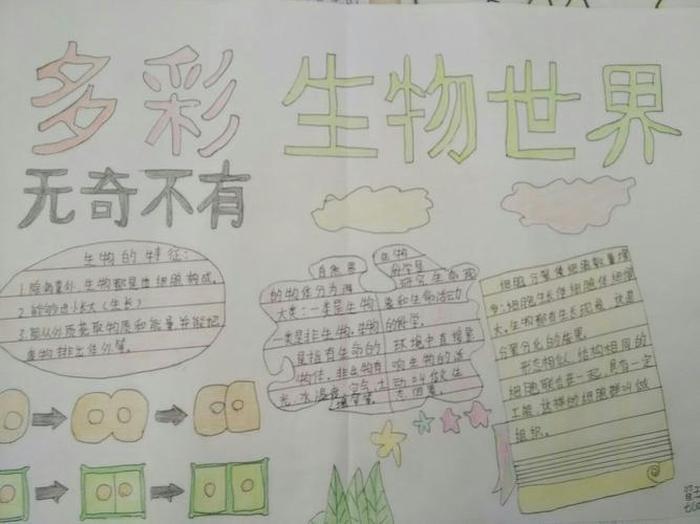 多彩 生物世界
无奇不有
生物的特征:
1.除病毒外,生物都是由细胞构成。
2.能够由小长大(生长)
3.能从外界获取物质和能量并能把
废物排出体外等。
自然界
的物体分为两
大类:一类是生物
一类是非生物,生物
是指有生命的
物体,非生物有
光、水、温度、空气、土
壤等。
生物
学是
研究生命现
象和生命活动
的科学。
环境中直接影
响生物的活
动叫做生
态因素。
细胞分裂使细胞数量增
多;细胞生长使细胞体积增
大,生物都有生长现象,这是
分裂分化的结果。
形态相似、结构相同的
细胞联合在一起,具有一定
功能,这样的细胞群叫做
组织。